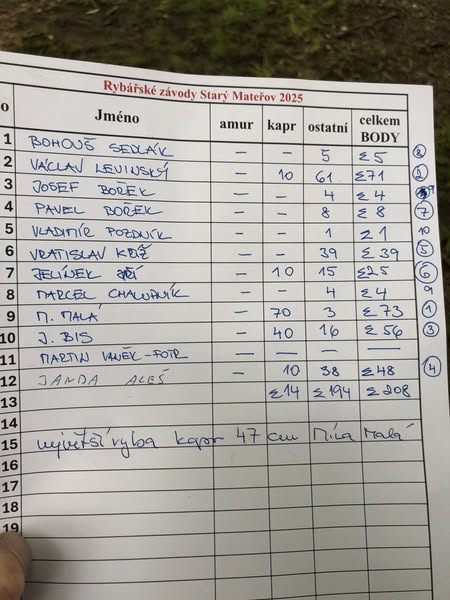 Rybářské závody Starý Mateřov 2025
o Jméno amur kapr ostatní celkem BODY
1 BOHOUŠ SEDLÁK — — 5 Σ 5 8
2 VÁCLAV LEVINSKÝ — 10 61 Σ 71 2
3 JOSEF BOŘEK — — 4 Σ 4 9
4 PAVEL BOŘEK — — 8 Σ 8 7
5 VLADIMÍR POZDNÍK — — 1 Σ 1 10
6 VRATISLAV KŘÍŽ — — 39 Σ 39 5
7 JELÍNEK JIŘÍ — 10 15 Σ 25 6
8 MARCEL CHALUPNÍK — — 4 Σ 4 9
9 M. MALÁ — 70 3 Σ 73 1
10 J. BIS — 40 16 Σ 56 3
11 MARTIN VANĚK - FOTR — — — —
12 JANDA ALEŠ — 10 38 Σ 48 4
13 Σ 14 Σ 194 Σ 208
14
15 největší ryba kapr 47 cm Míla Malá
16
17
18
19